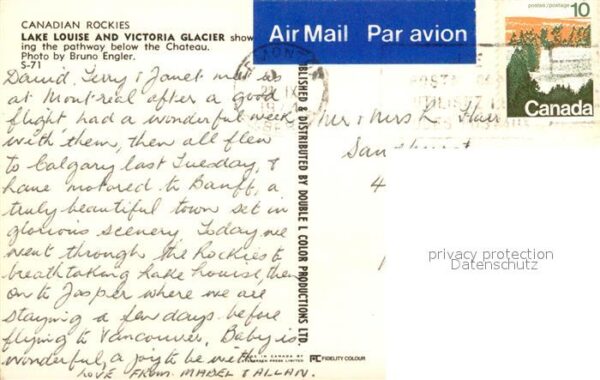 CANADIAN ROCKIES
LAKE LOUISE AND VICTORIA GLACIER show
ing the pathway below the Chateau.
Photo by Bruno Engler.
S-71
David, Terry & Janet met us
at Montreal after a good
flight, had a wonderful week
with them, then all flew
to Calgary last Tuesday, &
have motored to Banff, a
truly beautiful town set in
glorious scenery. Today we
went through the Rockies to
breathtaking Lake Louise, then
on to Jasper where we are
staying a few days before
flying to Vancouver. Baby is
wonderful, a joy to be with
LOVE FROM MABEL & ALLAN.
PUBLISHED & DISTRIBUTED BY DOUBLE L COLOR PRODUCTIONS LTD.
Air Mail Par avion
postes/postage
10
Canada
Mr & Mrs
4
privacy protection
Datenschutz
FC FIDELITY COLOUR